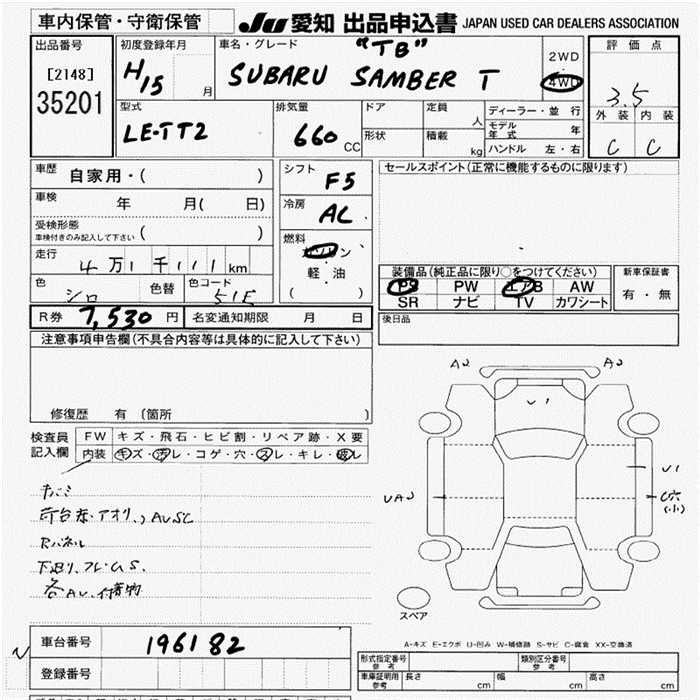 車内保管・守衛保管
JU 愛知 出品申込書 JAPAN USED CAR DEALERS ASSOCIATION
出品番号
[2148]
35201
初度登録年月
H15 月
車名・グレード
"TB"
SUBARU SAMBER T
2WD
・
4WD
評価点
3.5
外装 内装
C C
型式
LE-TT2
排気量
660 CC
ドア
形状
定員 人
積載 kg
ディーラー・並行
モデル年式 年
ハンドル 左・右
車歴 自家用・( )
車検 年 月( 日)
受検形態
車検付きのみ記入して下さい ( )
走行 4万1千111km
色 シロ 色替 色コード 51E
シフト F5
冷房 AC
燃料
ガソリン
・
軽油
( )
セールスポイント(正常に機能するものに限ります)
装備品(純正品に限り○をつけてください)
PS PW エアB AW
SR ナビ TV カワシート
新車保証書
有・無
後日品
R券 7,530円 名変通知期限 月 日
注意事項申告欄(不具合内容等は具体的に記入して下さい)
修復歴 有 〔箇所 〕
検査員
記入欄
FW キズ・飛石・ヒビ割・リペア跡・X要
内装 キズ・汚レ・コゲ・穴・スレ・キレ・破レ
荷台赤・アオリ、AUSC
Rパネル
下廻り、フレームS.
各AU、付着物
A2 A2
U1
U1
UA2
C穴
(小)
スペア
A-キズ E-エクボ U-凹み W-補修跡 S-サビ C-腐食 XX-交換済
車台番号 196182
登録番号
形式指定番号
参考
類別区分番号
参考
車庫証明用
参考
長さ cm 幅 cm 高さ cm